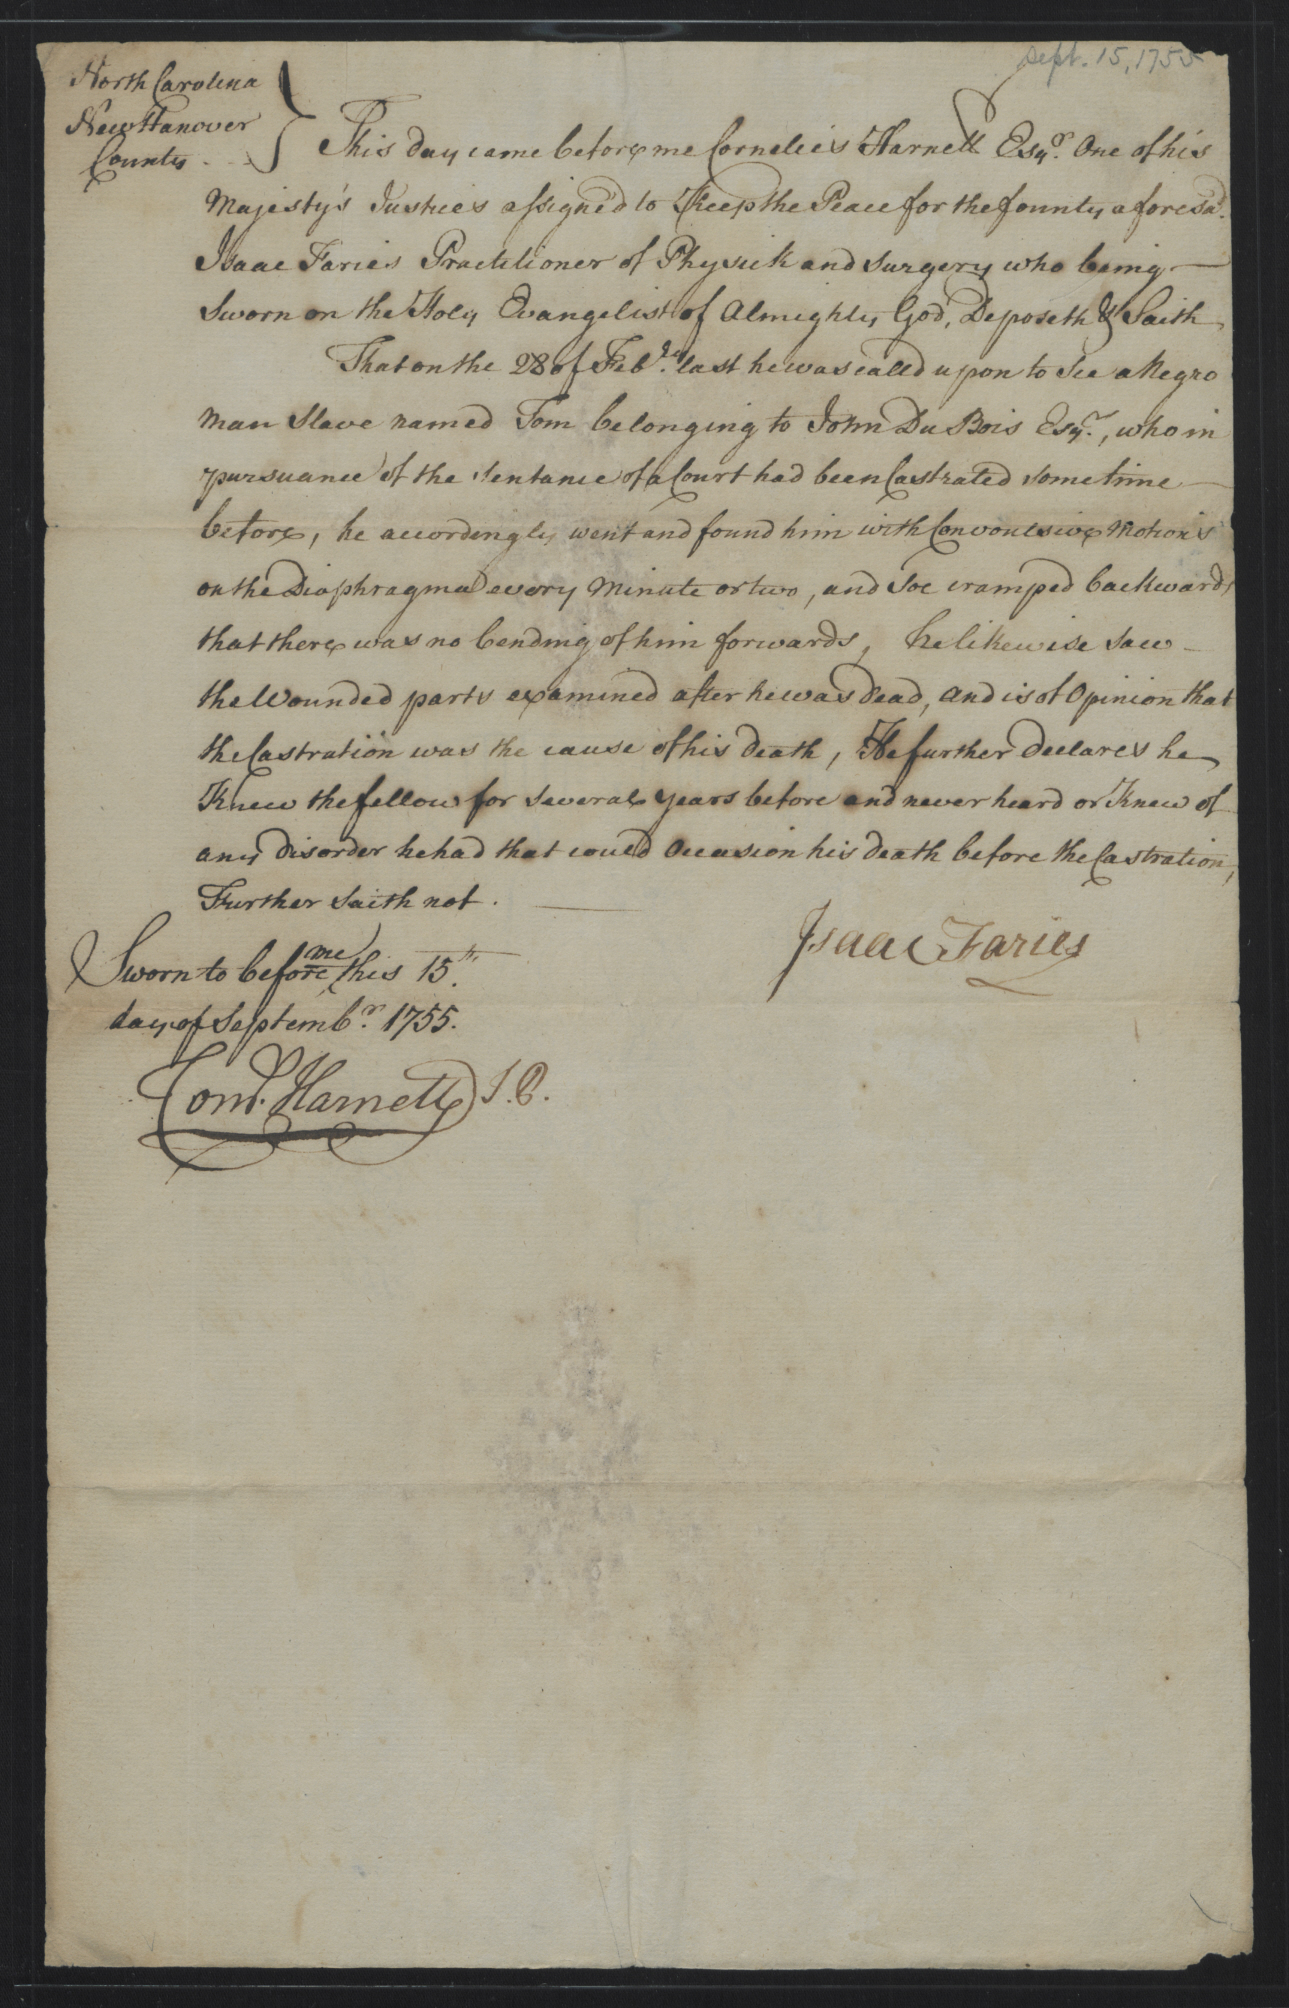 Sept. 15, 1755
North Carolina
New Hanover
County
This day came before me Cornelius Harnett Esqr. One of his
Majesty's Justices assigned to Keep the Peace for the County aforesd.
Isaac Faries Practitioner of Physick and Surgery who being
Sworn on the Holy Evangelist of Almighty God, Deposeth & Saith
That on the 28 of Feb.ry last he was called upon to See a Negro
man Slave named Tom belonging to John DuBois Esqr., who in
pursuance of the Sentance of a Court had been Castrated sometime
before, he accordingly went and found him with Convoulsive Motions
on the Diaphragma every Minute or two, and Soe cramped backwards
that there was no bending of him forwards, he likewise saw
the Wounded parts examined after he was dead, and is of Opinion that
the Castration was the cause of his death, He further Declares he
Knew the fellow for several years before and never heard or Knew of
any disorder he had that could Occasion his death before the Castration,
Further Saith not.
Isaac Faries
Sworn to before me this 15th
day of Septembr. 1755.
Cornl. Harnett J.P.